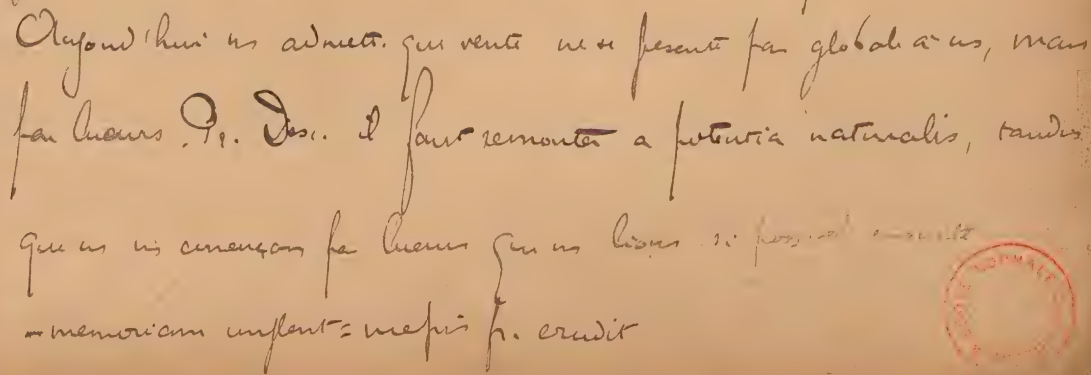 Aujourd'hui ns admett. que verité ne se presente pas globale à ns, mais
par lueurs. Pr. Desc. il faut remonter a potentia naturalis, tandis
que ns ns commençons par lueurs que ns lions si possible ensuite
= memoriam implent = mepris pr. erudit
ECOLE NORMALE